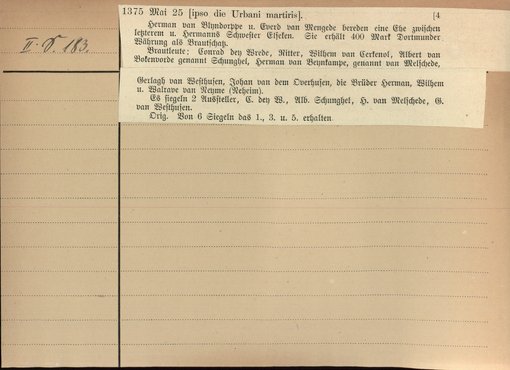 1375 Mai 25 [ipso die Urbani martiris]. [4
Herman van Blyndorppe u. Everd van Mengede bereden eine Ehe zwischen
letzterem u. Hermanns Schwester Elseken. Sie erhält 400 Mark Dortmunder
Währung als Brautschatz.
II. S. 183.
Brautleute: Conrad dey Wrede, Ritter, Wilhem van Certenol, Albert van
Bokenvorde genannt Schunghel, Herman van Beynkampe, genannt van Melschede,
Gerlagh van Westhusen, Johan van dem Overhusen, die Brüder Herman, Wilhem
u. Waltave van Neyme (Neheim).
Es siegeln 2 Aussteller, C. dey W., Alb. Schunghel, H. van Melschede, G.
van Westhusen.
Orig. Von 6 Siegeln das 1., 3. u. 5. erhalten